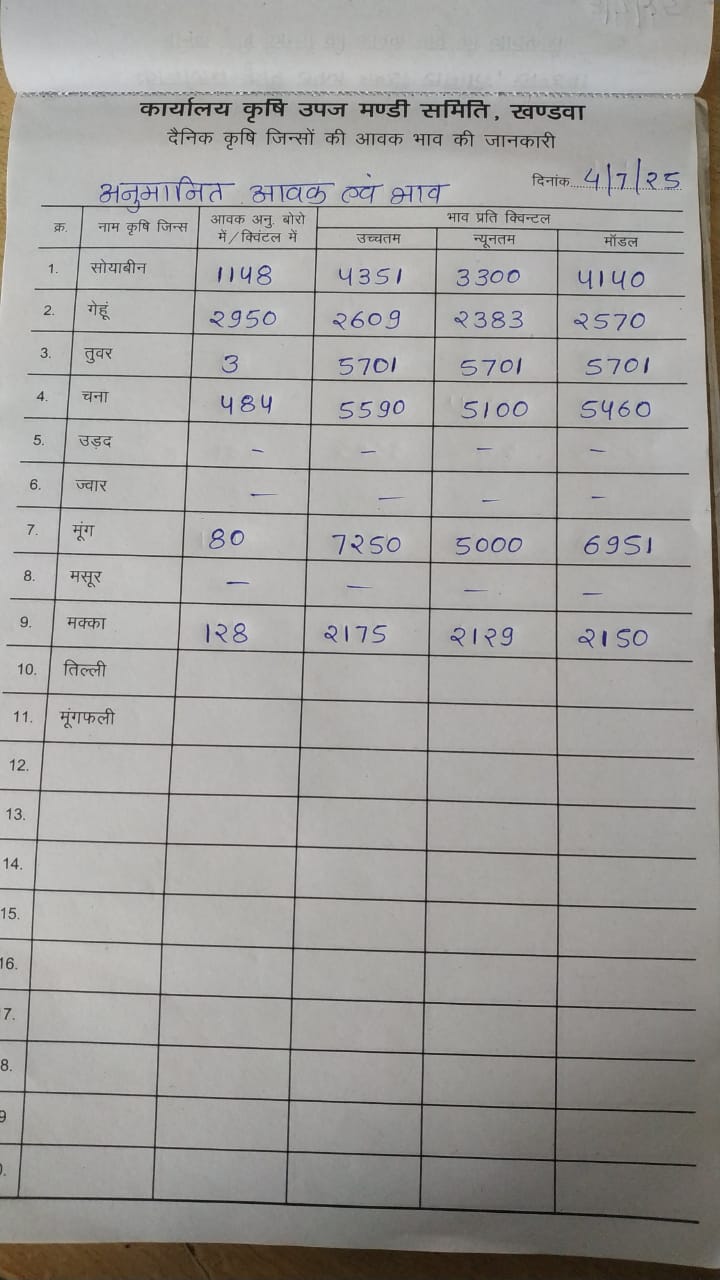 कार्यालय कृषि उपज मण्डी समिति, खण्डवा
दैनिक कृषि जिन्सों की आवक भाव की जानकारी
दिनांक 4/7/२5
अनुमानित आवक एवं भाव
क्र. नाम कृषि जिन्स आवक अनु. बोरो में/क्विंटल में भाव प्रति क्विन्टल
उच्चतम न्यूनतम मॉडल
1. सोयाबीन 1148 4351 3300 4140
2. गेहूं २950 २609 २383 २570
3. तुवर 3 5701 5701 5701
4. चना 484 5590 5100 5460
5. उड़द - - - -
6. ज्वार - - - -
7. मूंग 80 7२50 5000 6951
8. मसूर - - - -
9. मक्का 1२8 २175 २1२9 २150
10. तिल्ली
11. मूंगफली
12.
13.
14.
15.
16.
7.
8.
9